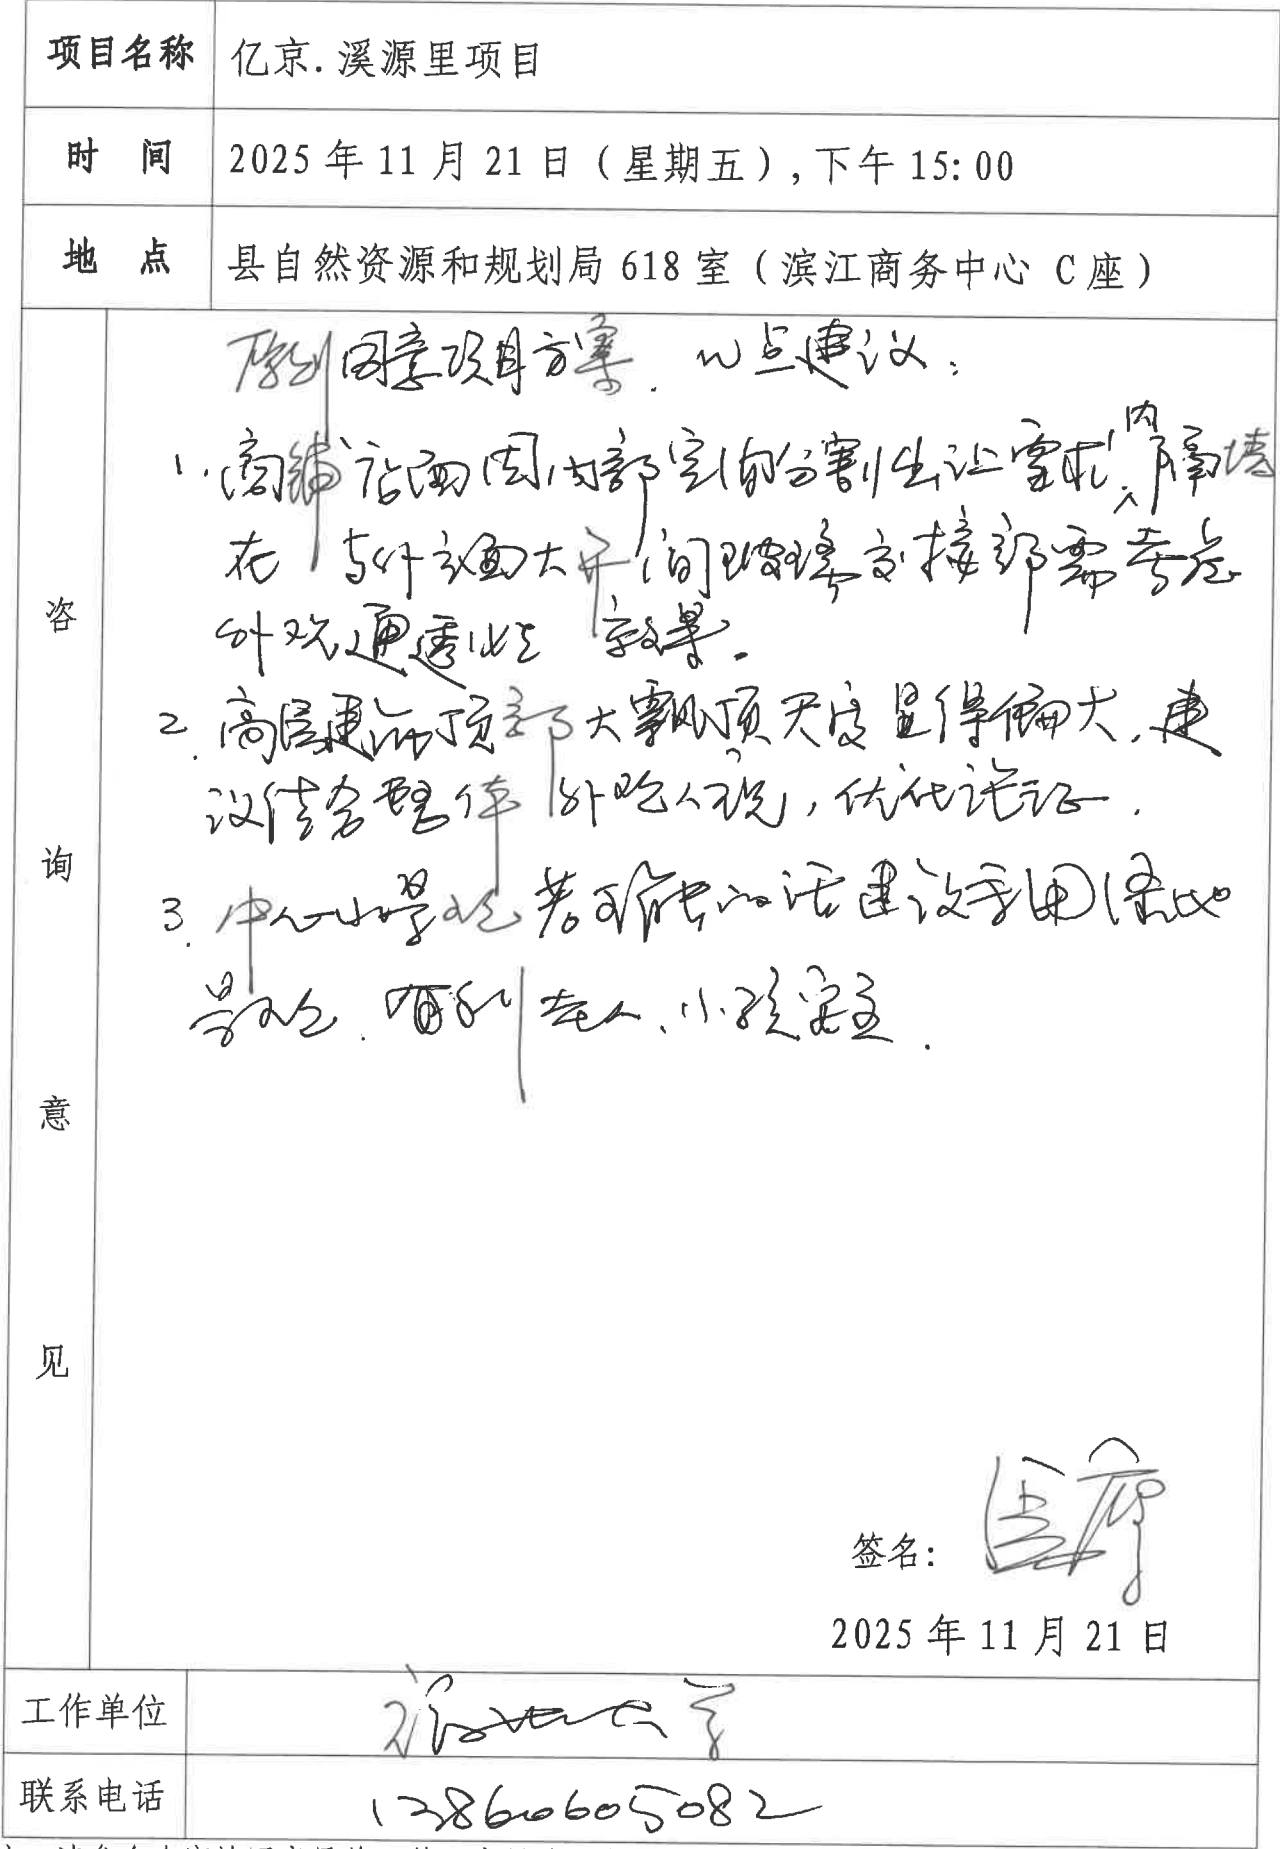 项目名称 亿京.溪源里项目
时 间 2025年11月21日（星期五）,下午15:00
地 点 县自然资源和规划局618室（滨江商务中心 C座）
咨询意见
原则同意项目方案. 几点建议：
1. 商铺店面因内部空间分割出让需求,内隔墙
在 与外立面大开间玻璃交接部需考虑
外观通透性 效果.
2. 高层建筑顶部大飘顶尺度显得偏大.建
议结合整体 外观人视,优化论证.
3. 中心小景观 若可能的话建议采用绿地
景观.有利老人、小孩
签名：
2025年11月21日
工作单位
联系电话 13860605082